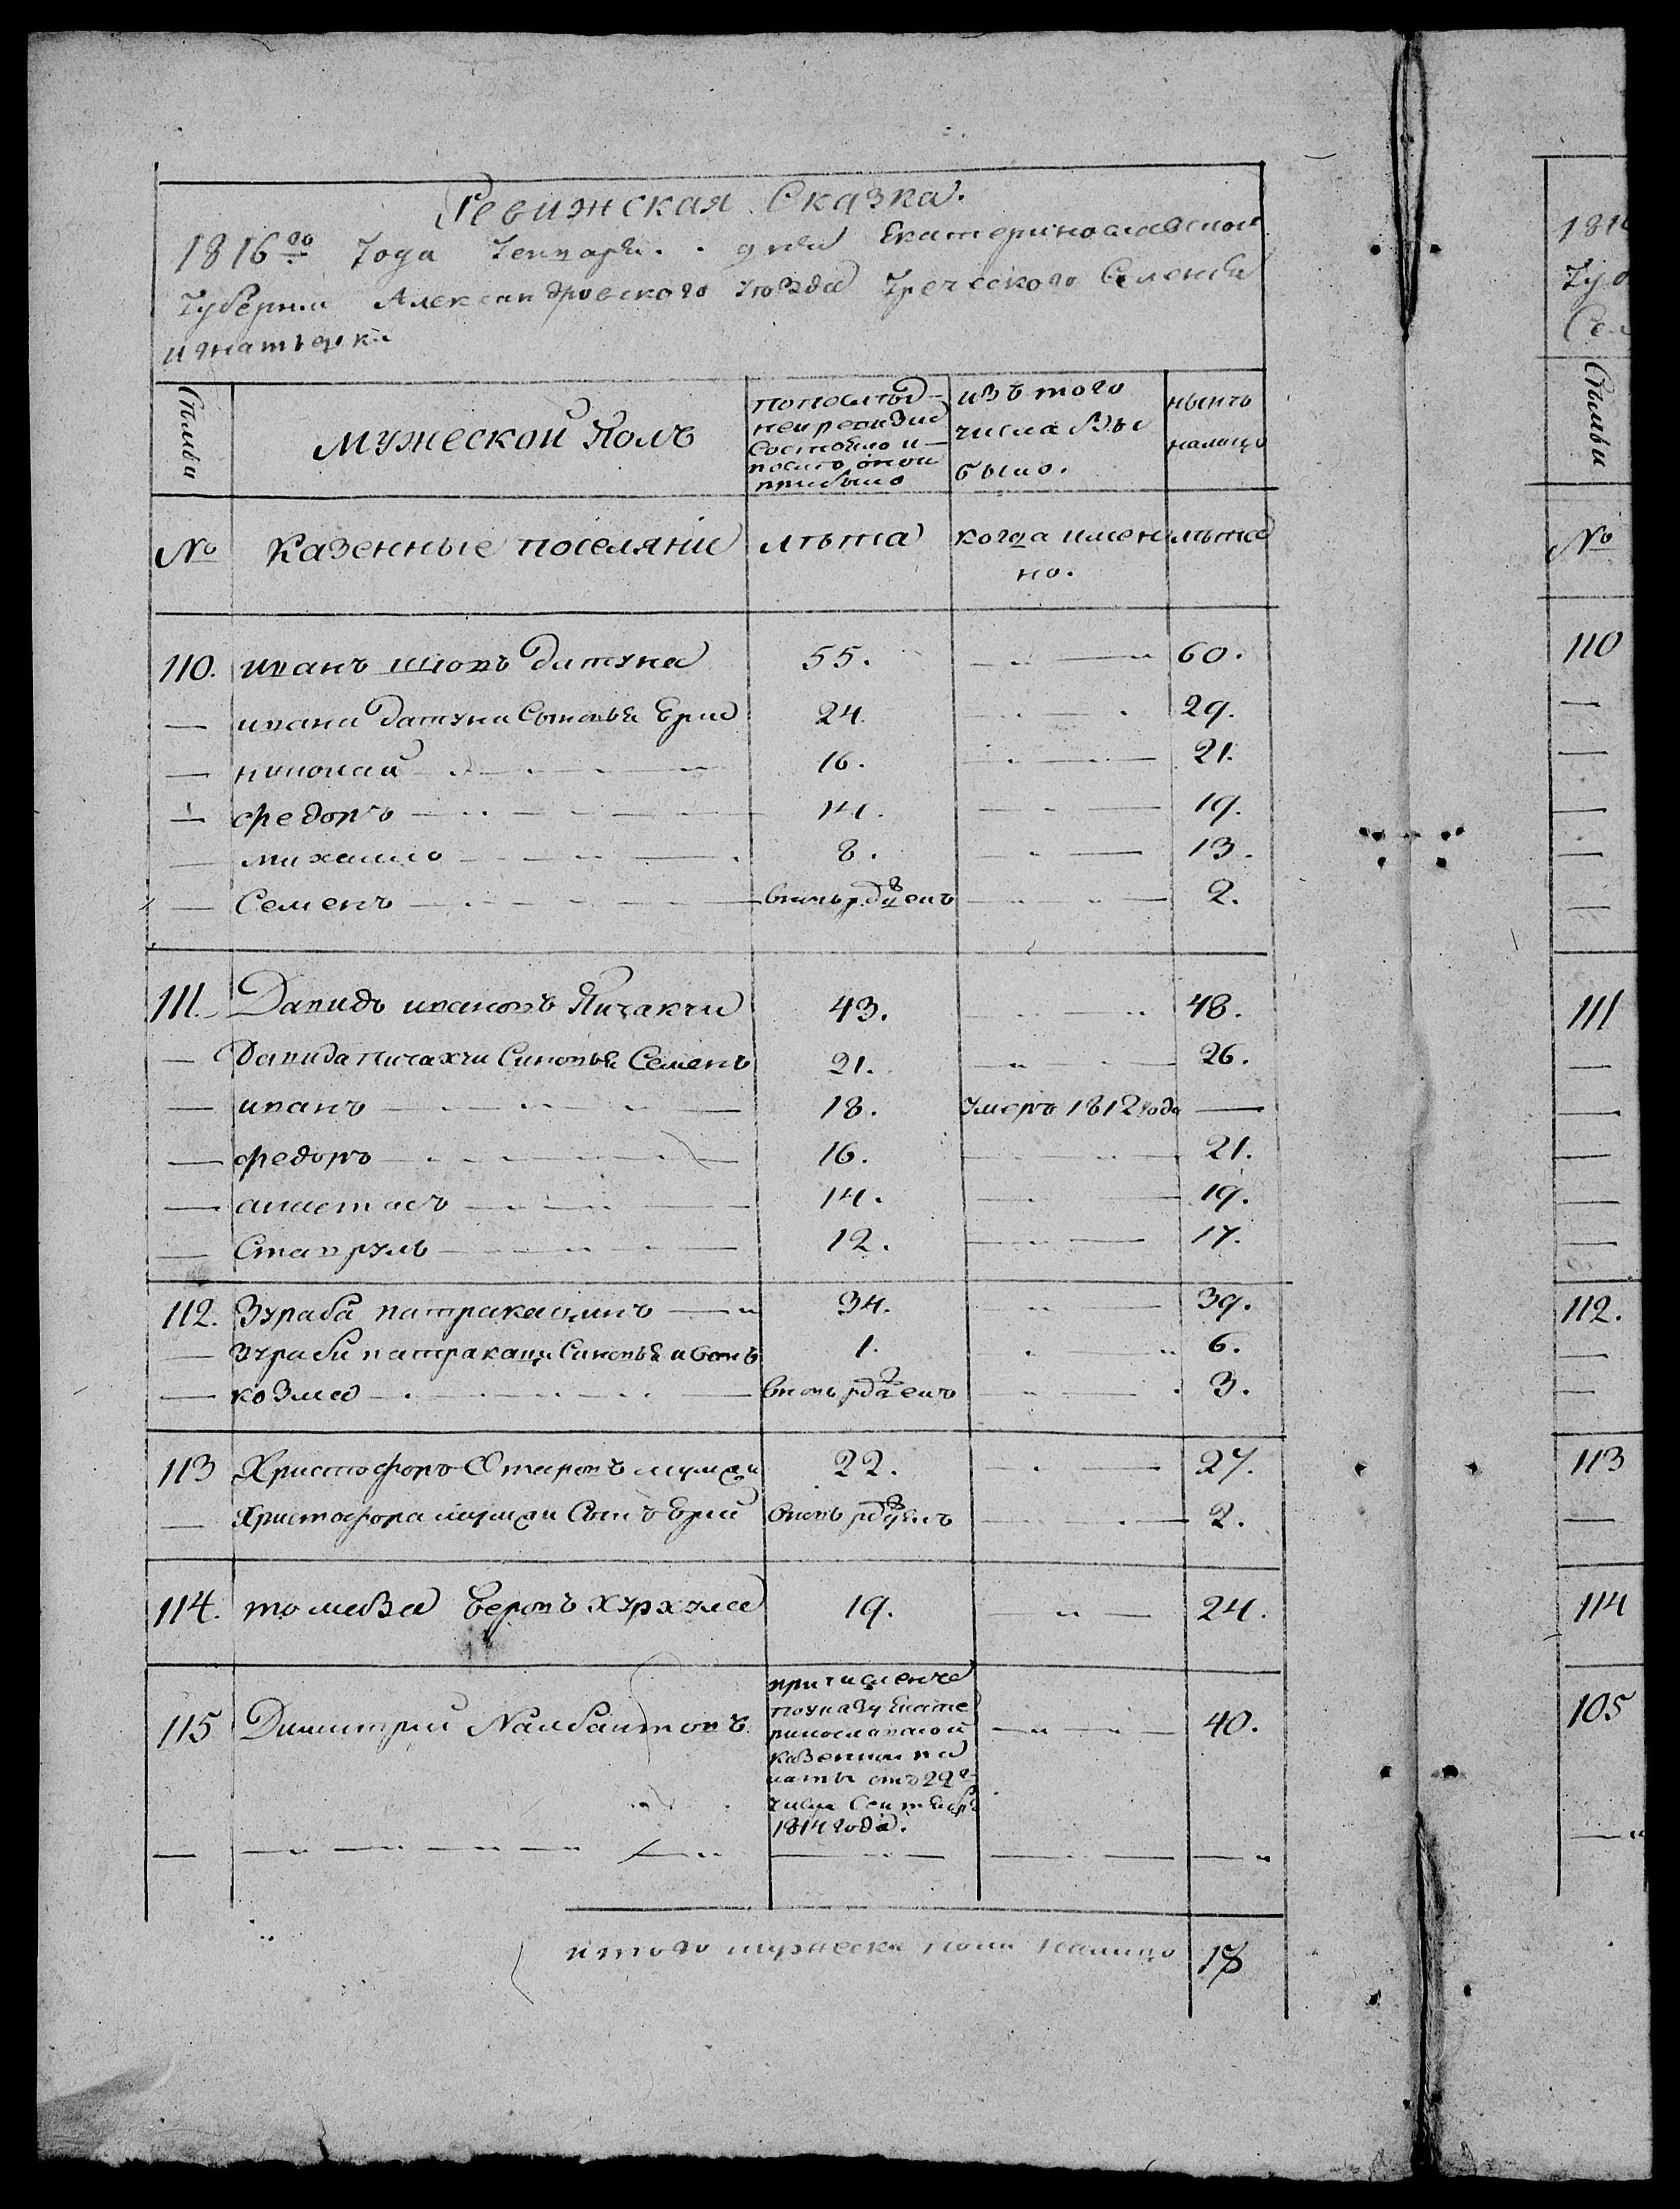 Ревижская Сказка.
1816го Года Генваря . . дня Екатеринославской
Губернии Александровского уѣзда Греческого Селения
игнатьевки
Семьи
мужеской Полъ
по послѣд-
ней ревизии
Состояло и-
послѣ оной
прибыло
изъ того
числа Вы
было.
нынѣ
налицо
№ Казенные поселяни лѣта когда имен лѣта
но.
110. иванъ Датука 55. 60.
— ивана Датуки Сыновья Ерий 24. 29.
— николай 16. 21.
— федоръ 14. 19.
— михаило 8. 13.
— Семенъ вновь рденъ 2.
111. Давидъ ивановъ Пичакчи 43. 48.
— Давида пичахчи Синовья Семенъ 21. 26.
— иванъ 18. умеръ 1812 года —
— федоръ 16. 21.
— анастасъ 14. 19.
— Ставруль 12. 17.
112. Зураба патракацинъ 34. 39.
— Зураби патракаци Синовья иванъ 1. 6.
— козма вновь рденъ 3.
113 Христофоръ Отаровъ 22. 27.
— Христофора Сынъ Ерий вновь рденъ 2.
114. томаза Беровъ Хурхума 19. 24.
115 Димитрий Налбантовъ
причисленъ
по указу Екате
ринославской
казенной па
латы отъ 22го
числа Сентября
1814 года.
40.
итого мужеска пола налицо 18
1816
Гу
Се
Семьи
№
110
111
112.
113
114
105